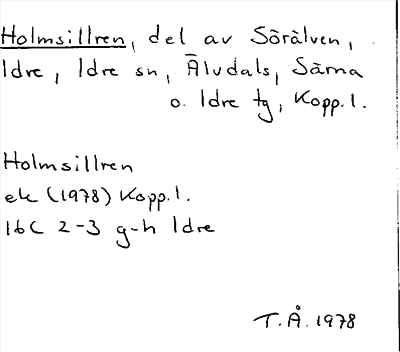 Holmsillren, del av Sörälven,
Idre, Idre sn, Älvdals, Särna
o. Idre tg, Kopp.l.
Holmsillren
ek (1978) Kopp.l.
16C 2-3 g-h Idre
T.Å. 1978